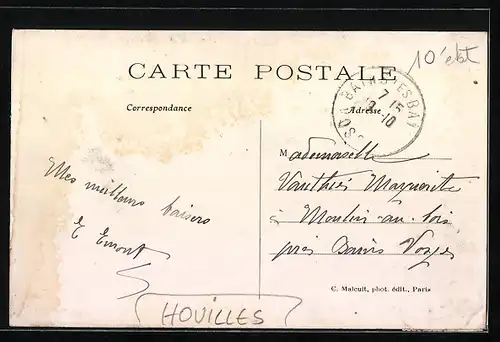 10
CARTE POSTALE
Correspondance
Adresse
BAINS-LES-BAINS
7 15
10
Mademoiselle
Vauthier Marguerite
à Moulin-au-bois
près Bains Vosges
Mes meilleurs baisers
E Emont
C. Malcuit, phot. édit., Paris
HOUILLES